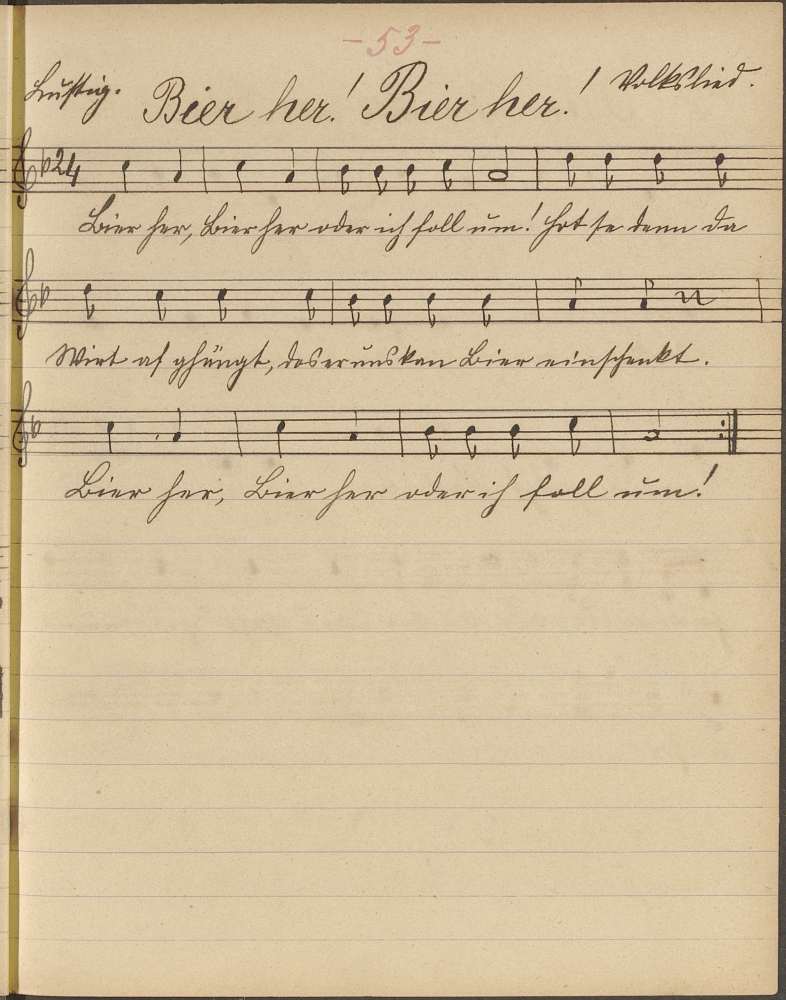 - 53 -
Lustig. Bier her! Bier her! Volkslied.
24
Bier her, Bier her oder ich foll um! Hot se denn da
Wirt af ghängt, das er uns kan Bier einschenkt.
Bier her, Bier her oder ich foll um!